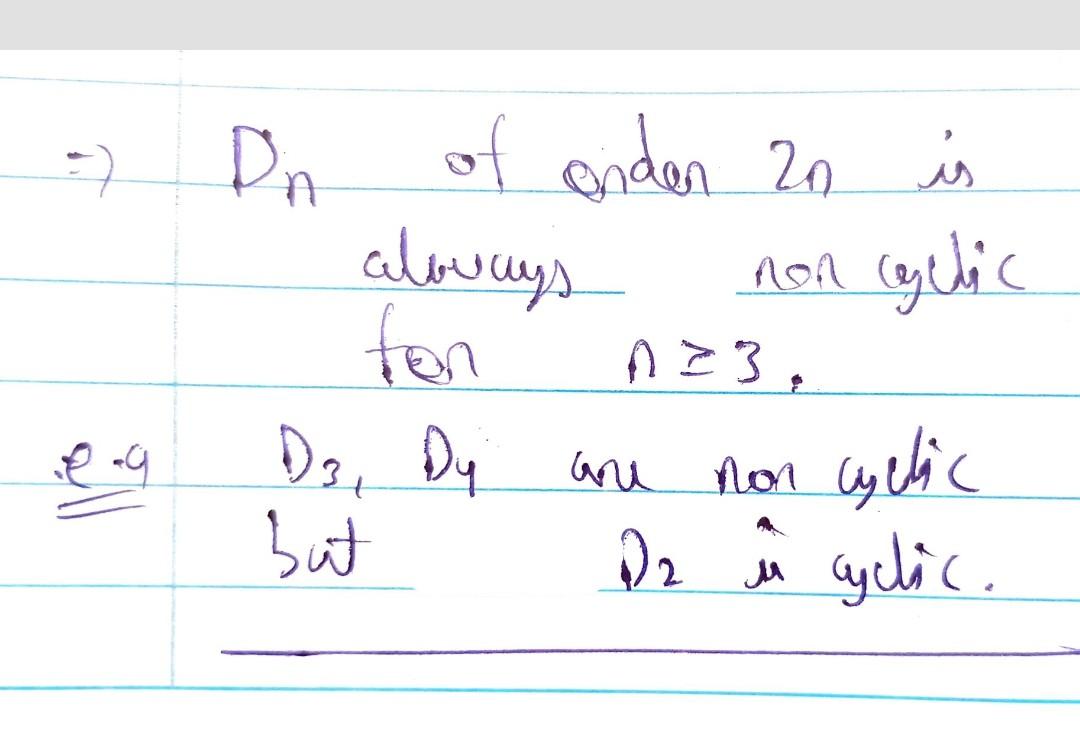 => Dn of order 2n is
always non cyclic
for n ≥ 3.
e.g D3, D4 are non cyclic
but D2 is cyclic.